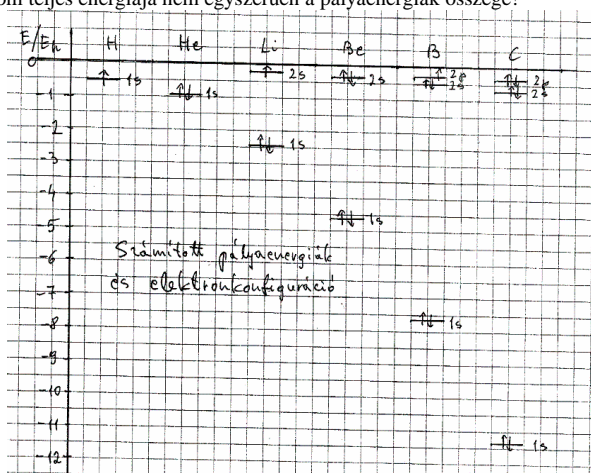 om teljes energiája nem egyszerűen a pályaenergiák összege?
E/Eh H He Li Be B C
0
1s
1s
2s
2s
2p
2s
2p
2s
-1
-2
1s
-3
-4
1s
-5
-6
Számított pályaenergiák
és elektronkonfiguráció
-7
-8
1s
-9
-10
-11
1s
-12